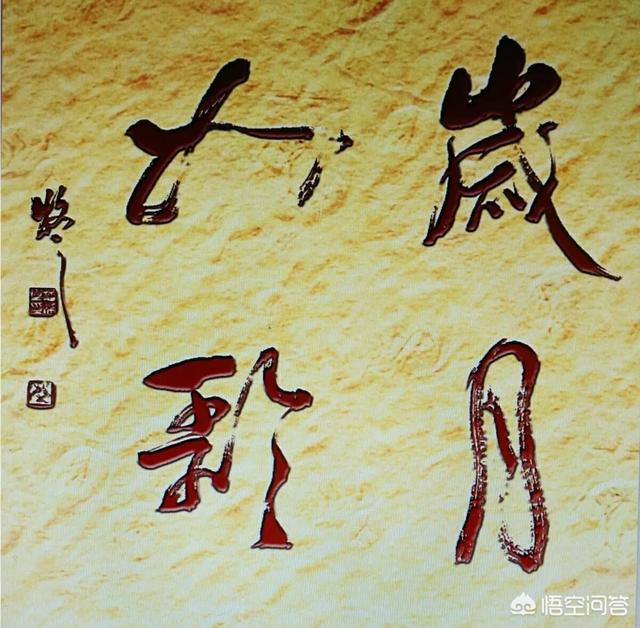 歲月
如歌
悟空问答